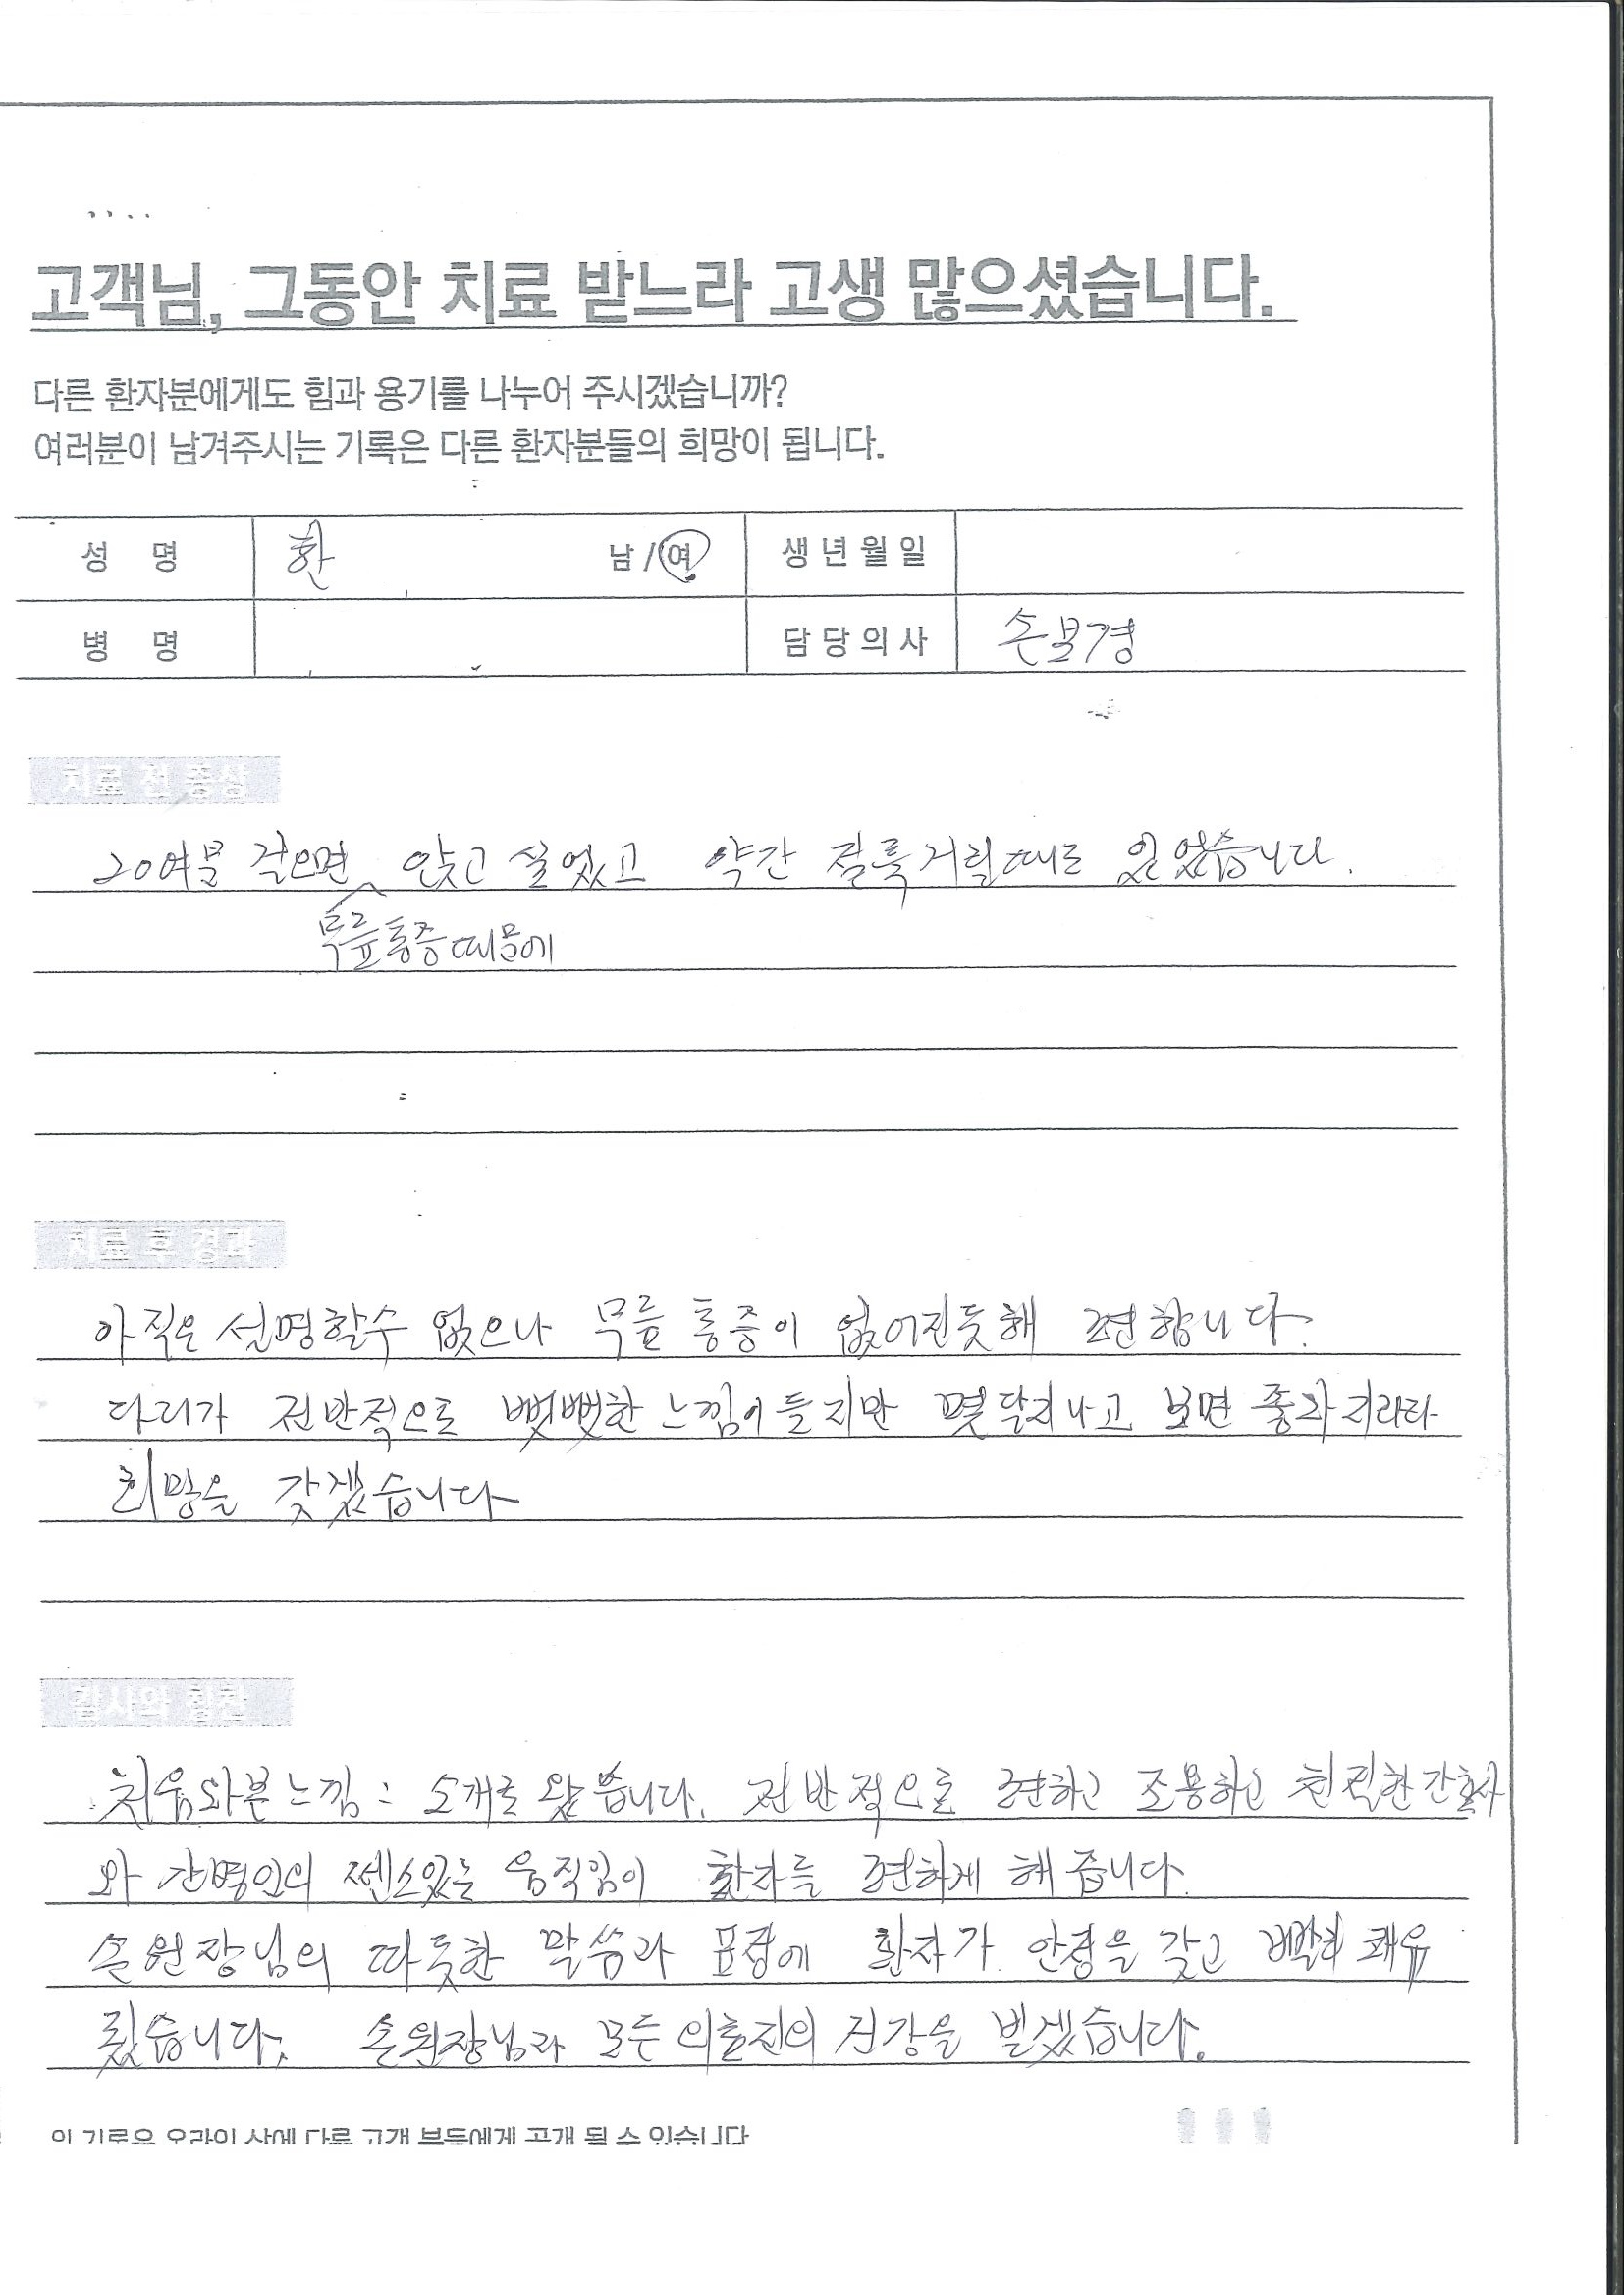 고객님, 그동안 치료 받느라 고생 많으셨습니다.
다른 환자분에게도 힘과 용기를 나누어 주시겠습니까?
여러분이 남겨주시는 기록은 다른 환자분들의 희망이 됩니다.
성 명 한 남/여 생년월일
병 명 담당의사 손보경
치료 전 증상
20여분 걸으면 앉고 싶었고 약간 절룩거릴때도 있었습니다.
무릎통증때문에
치료 후 경과
아직은 설명할수 없으나 무릎 통증이 없어진듯해 편합니다.
다리가 전반적으로 뻣뻣한 느낌이 들지만 몇달지나고 보면 좋아지리라
희망을 갖겠습니다
감사의 한마디
처음와본느낌: 소개로 왔습니다. 전반적으로 편하고 조용하고 친절한간호사
와 간병인의 쎈스있는 움직임이 환자를 편하게 해줍니다.
손원장님의 따듯한 말씀과 표정에 환자가 안정을 갖고 빨리 쾌유
됬습니다. 손원장님과 모든 의료진의 건강을 빌겠습니다.
이 기록은 온라인 상에 다른 고객 분들에게 공개 될 수 있습니다